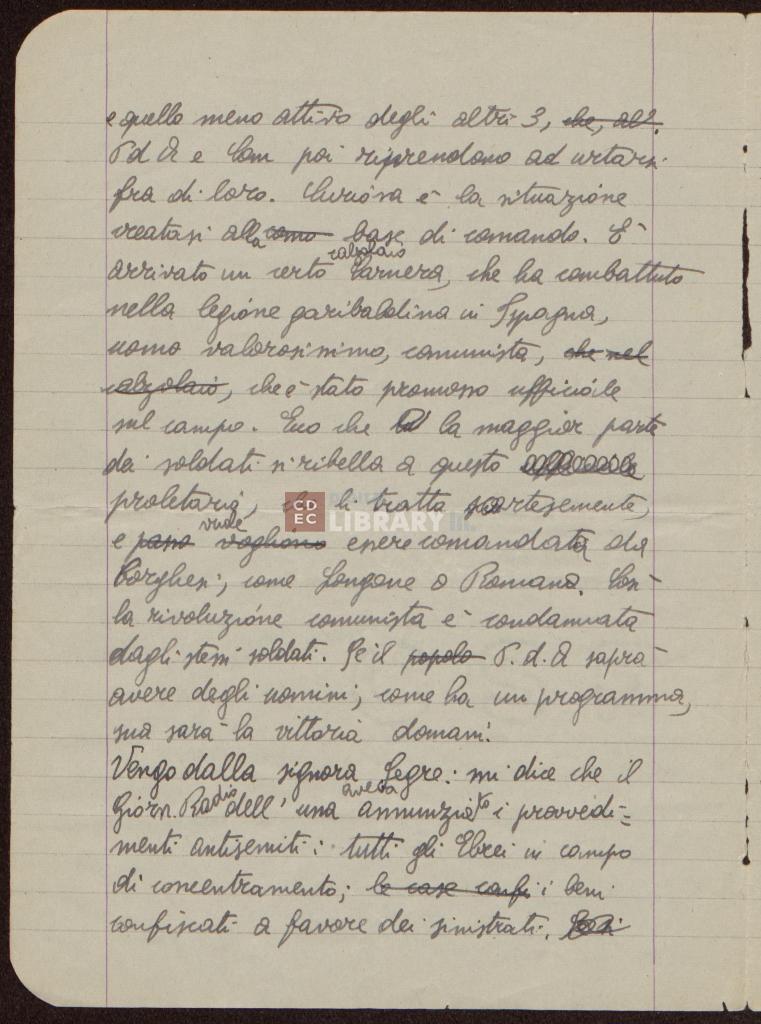 e quello meno attivo degli altri 3, che, al
P d A e Com poi riprendono ad urtarsi
fra di loro. Curiosa è la situazione
creatasi alla como base di comando. È
arrivato un certo calzolaio Carnera, che ha combattuto
nella legione garibaldina in Spagna,
uomo valorosissimo, comunista, che nel
calzolaio, che è stato promosso ufficiale
sul campo. Ecco che la maggior parte
dei soldati si ribella a questo
proletario, che li tratta scortesemente,
e passo vuole vogliono essere comandata da
borghesi, come Longone o Romano. Così
la rivoluzione comunista è condannata
dagli stessi soldati. Se il popolo P. d. A saprà
avere degli uomini, come ha un programma,
sua sarà la vittoria domani.
Vengo dalla signora Segre: mi dice che il
Giorn. Radio dell' una aveva annunziato i provvedi=
menti antisemiti: tutti gli Ebrei in campo
di concentramento; le case confi i beni
confiscati a favore dei sinistrati.
CDEC
LIBRARY